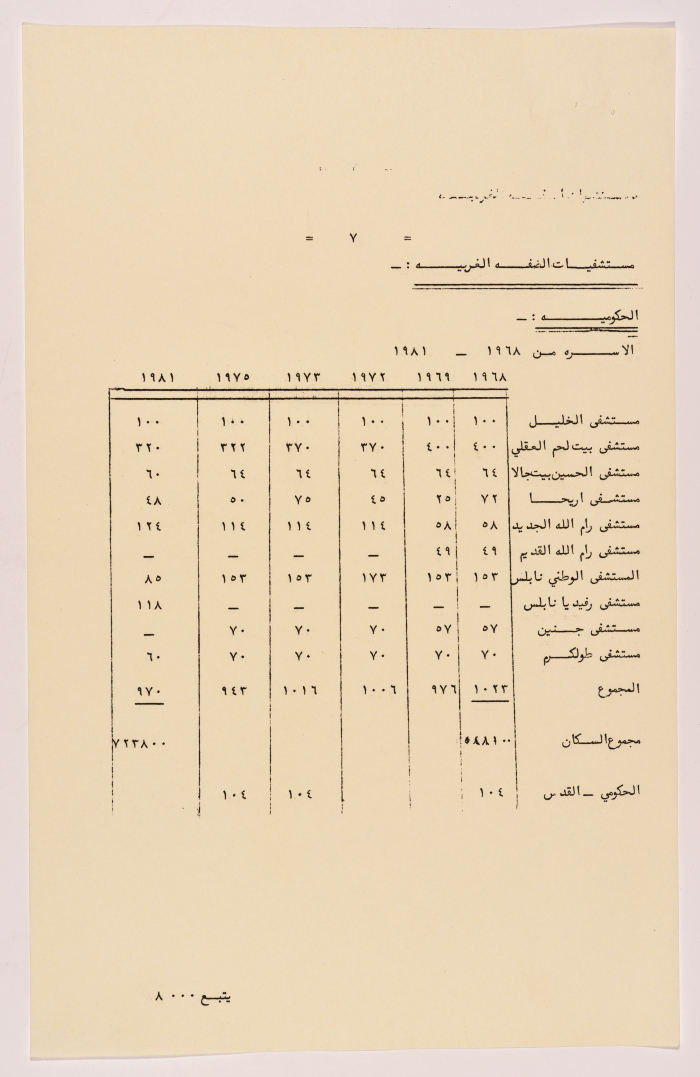 = ٧ =
مستشفيات الضفه الغربيه : ـ
الحكوميه : ـ
الاسره من ١٩٦٨ ـ ١٩٨١
١٩٦٨ ١٩٦٩ ١٩٧٢ ١٩٧٣ ١٩٧٥ ١٩٨١
مستشفى الخليل ١٠٠ ١٠٠ ١٠٠ ١٠٠ ١٠٠ ١٠٠
مستشفى بيت لحم العقلي ٤٠٠ ٤٠٠ ٣٧٠ ٣٧٠ ٣٢٢ ٣٢٠
مستشفى الحسين بيت جالا ٦٤ ٦٤ ٦٤ ٦٤ ٦٤ ٦٠
مستشفى اريحا ٧٢ ٢٥ ٤٥ ٧٥ ٥٠ ٤٨
مستشفى رام الله الجديد ٥٨ ٥٨ ١١٤ ١١٤ ١١٤ ١٢٤
مستشفى رام الله القديم ٤٩ ٤٩ ـ ـ ـ ـ
المستشفى الوطني نابلس ١٥٣ ١٥٣ ١٧٣ ١٥٣ ١٥٣ ٨٥
مستشفى رفيديا نابلس ـ ـ ـ ـ ـ ١١٨
مستشفى جنين ٥٧ ٥٧ ٧٠ ٧٠ ٧٠ ـ
مستشفى طولكرم ٧٠ ٧٠ ٧٠ ٧٠ ٧٠ ٦٠
المجموع ١٠٢٣ ٩٧٦ ١٠٠٦ ١٠١٦ ٩٤٣ ٩٧٠
مجموع السكان ٧٢٣٨٠٠
الحكومي ـ القدس ١٠٤ ١٠٤ ١٠٤
يتبع ٠٠٠ ٨